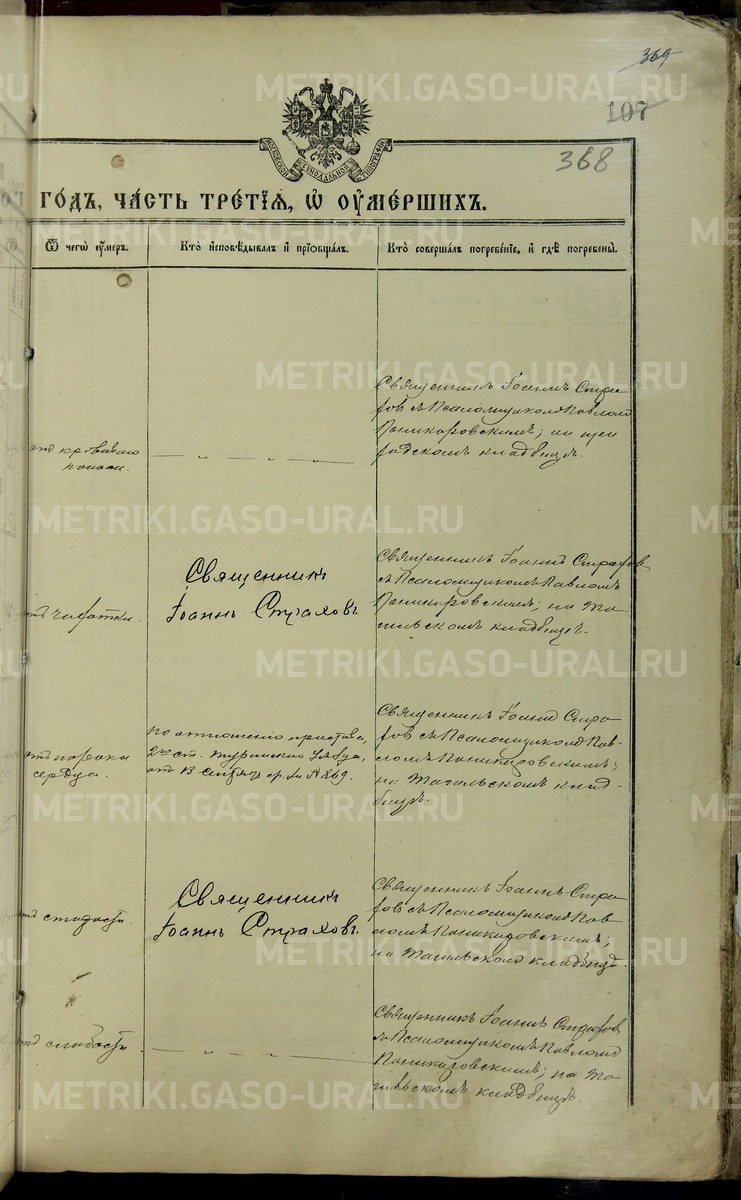 369
107
368
МОСКОВСКОЙ СѴНОДАЛЬНОЙ ТИПОГРАФІИ
го́дъ, ча́сть тре́тїѧ, ѡ҆ ᲂу҆ме́ршихъ.
Ѿ чегѡ̀ ᲂу҆́меръ.
Кто̀ и҆сповѣ́дывалъ и҆ прїѡбща́лъ.
Кто̀ соверша́лъ погребе́нїе, и҆ гдѣ̀ погребены̀.
отъ кроваваго
поноса.
— „ — „ — „ —
Священникъ Іоаннъ Стра
хов съ Псаломщикомъ Павломъ
Поникаровскимъ; на
кладбищѣ.
отъ чахотки.
Священникъ
Іоаннъ Страховъ.
Священникъ Іоаннъ Страхов
съ Псаломщикомъ Павломъ
Поникаровскимъ; на Та
гильскомъ кладбищѣ.
отъ порока
сердца.
по отношенію пристава,
2го ст. Туринскаго Уѣзда,
отъ 13 Сентяб. №
Священникъ Іоаннъ Стра
хов съ Псаломщикомъ Пав-
ломъ Поникаровскимъ;
на Тагильскомъ клад-
бищѣ.
отъ старости.
Священникъ
Іоаннъ Страховъ.
Священникъ Іоаннъ Стра
хов съ Псаломщикомъ Пав
ломъ Поникаровскимъ;
на Тагильскомъ кладбищѣ.
отъ слабости
— „ — „ — „ —
Священникъ Іоаннъ Страхов
съ Псаломщикомъ Павломъ
Поникаровскимъ; на Та
гильскомъ кладбищѣ.
METRIKI.GASO-URAL.RU